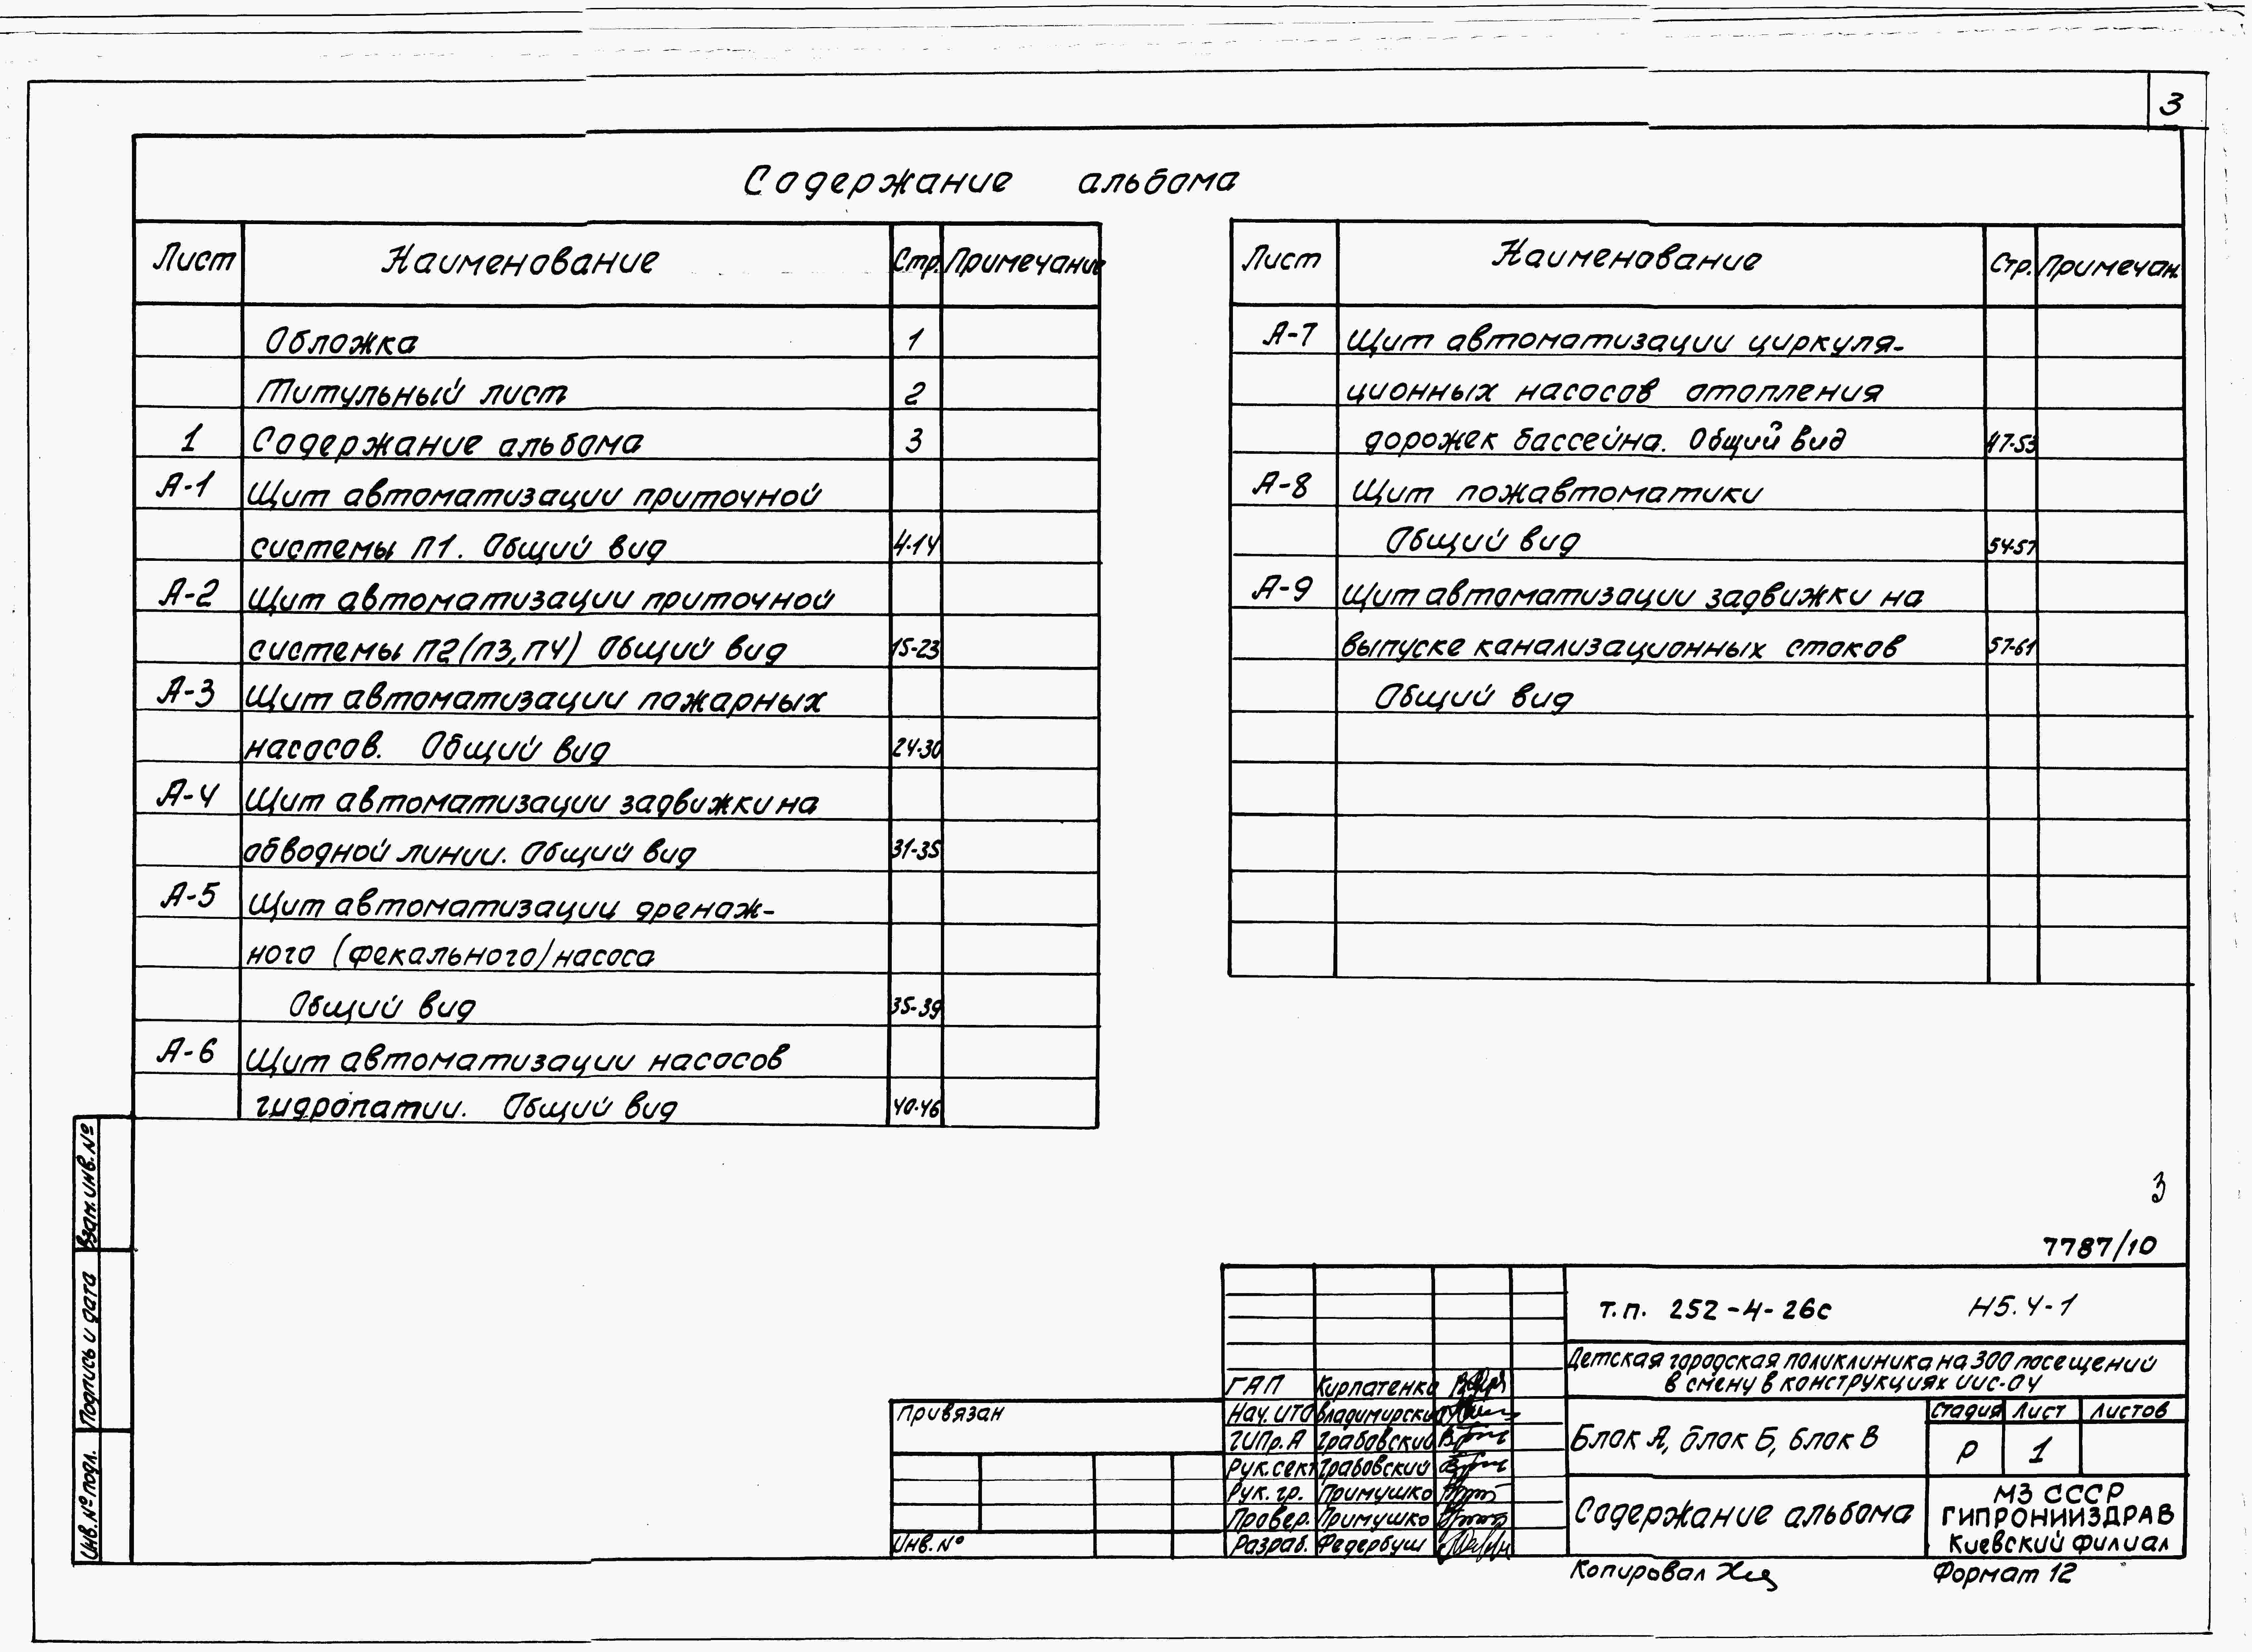 3
Содержание альбома
Лист Наименование Стр. Примечание
Обложка 1
Титульный лист 2
1 Содержание альбома 3
А-1 Щит автоматизации приточной
системы П1. Общий вид 4-14
А-2 Щит автоматизации приточной
системы П2(П3,П4) Общий вид 15-23
А-3 Щит автоматизации пожарных
насосов. Общий вид 24-30
А-4 Щит автоматизации задвижки на
обводной линии. Общий вид 31-35
А-5 Щит автоматизации дренаж-
ного (фекального) насоса
Общий вид 35-39
А-6 Щит автоматизации насосов
гидропатии. Общий вид 40-46
Лист Наименование Стр. Примечан.
А-7 Щит автоматизации циркуля-
ционных насосов отопления
дорожек бассейна. Общий вид 47-53
А-8 Щит пожавтоматики
Общий вид 54-57
А-9 Щит автоматизации задвижки на
выпуске канализационных стоков 57-61
Общий вид
3
7787/10
Взам. инв. №
Подпись и дата
Инв. № подл.
Привязан
Инв. №
ГАП Кирпатенко
Нач. ИТО Владимирский
ГИПр. А Грабовский
Рук. сект Грабовский
Рук. гр. Примушко
Провер. Примушко
Разраб. Федербуш
т.п. 252-4-26с Н5.4-1
Детская городская поликлиника на 300 посещений
в смену в конструкциях ИИС-04
Блок А, блок Б, блок В
Стадия Лист Листов
Р 1
Содержание альбома
МЗ СССР
ГИПРОНИИЗДРАВ
Киевский филиал
Копировал
Формат 12